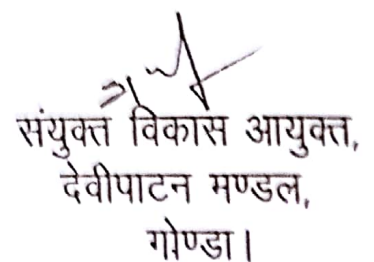 संयुक्त विकास आयुक्त,
देवीपाटन मण्डल,
गोण्डा।